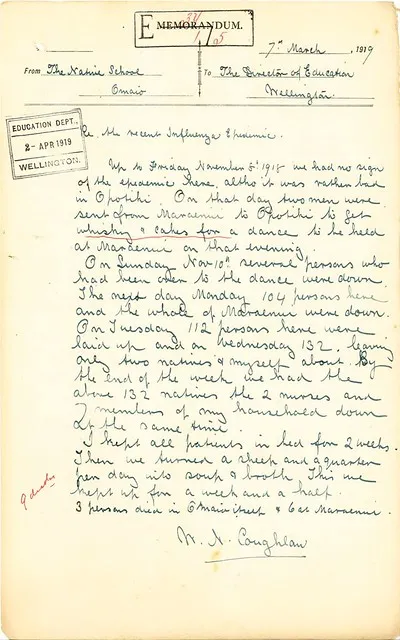 E MEMORANDUM.
7th March, 1919
From The Native School
Omaio
To The Director of Education
Wellington.
EDUCATION DEPT.,
2- APR 1919
WELLINGTON.
Re. the recent Influenza Epedemic.
Up to Friday November 8th 1918 we had no sign
of the epedemic here, altho it was rather bad
in Opotiki. On that day two men were
sent from Maraenui to Opotiki to get
whisky & cakes for a dance to be held
at Maraenui on that evening.
On Sunday Nov 10th several persons who
had been over to the dance were down.
The next day Monday 104 persons here
and the whole of Maraenui were down.
On Tuesday 112 persons here were
laid up and on Wednesday 132, leaving
only two natives & myself about. By
the end of the week we had the
above 132 natives the 2 nurses and
7 members of my household down
at the same time.
I kept all patients in bed for 2 weeks.
Then we turned a sheep and a quarter
per day into soup & broth. This we
kept up for a week and a half.
3 persons died in Omaio itself & 6 at Maraenui.
9 deaths
W. N. Coughlan